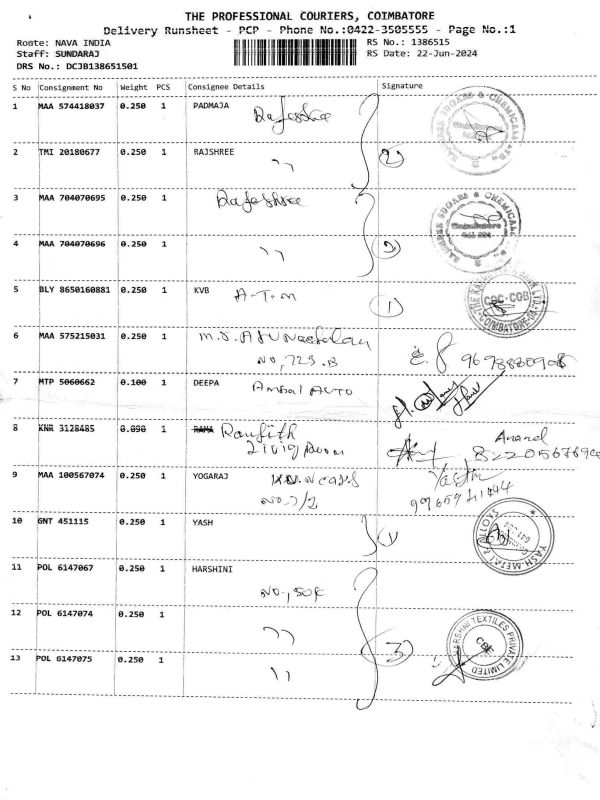 THE PROFESSIONAL COURIERS, COIMBATORE
Delivery Runsheet - PCP - Phone No.:0422-3505555 - Page No.:1
Route: NAVA INDIA RS No.: 1386515
Staff: SUNDARAJ RS Date: 22-Jun-2024
DRS No.: DCJB138651501
S No Consignment No Weight PCS Consignee Details Signature
1 MAA 574418037 0.250 1 PADMAJA Rajeshree
2 TMI 20180677 0.250 1 RAJSHREE " 2
3 MAA 704070695 0.250 1 Rajeshree
4 MAA 704070696 0.250 1 " 2
5 BLY 8650160881 0.250 1 KVB A-T-M 1
CBC-CGB
6 MAA 575215031 0.250 1
NO, 723. B
7 MTP 5060662 0.100 1 DEEPA Ambal AUTO
8 KNR 3128485 0.090 1 RAMA Ranjith Anand
Living Room
9 MAA 100567074 0.250 1 YOGARAJ
10 GNT 451115 0.250 1 YASH 1
11 POL 6147067 0.250 1 HARSHINI
12 POL 6147074 0.250 1 "
HARSHNI TEXTILES PRIVATE LIMITED
CBE
13 POL 6147075 0.250 1 " 3